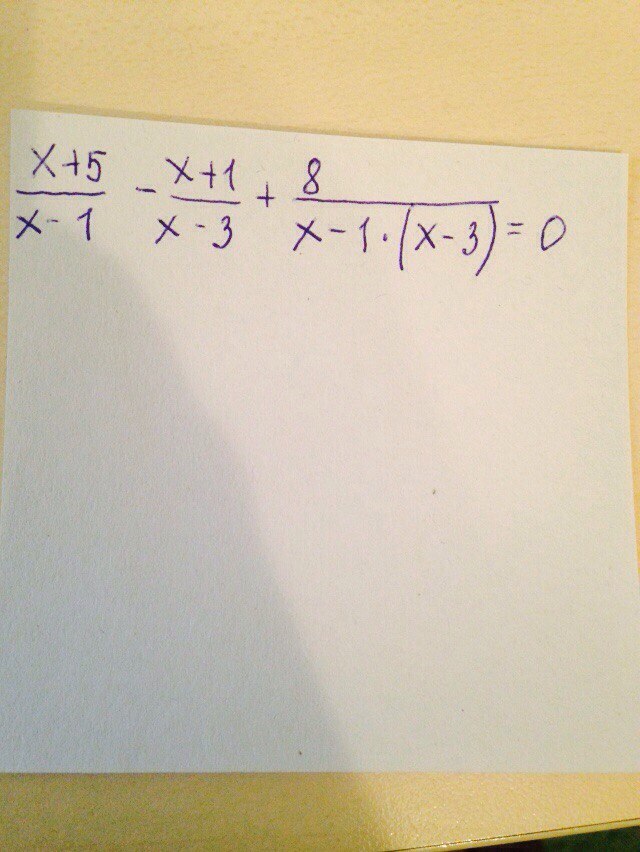 x+5/x-1 - x+1/x-3 + 8/x-1·(x-3) = 0